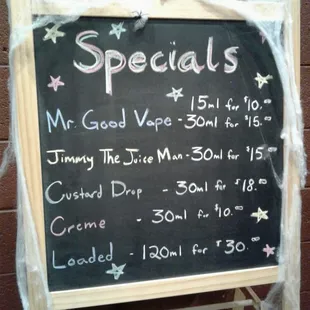 Specials
15ml for $10.00
Mr. Good Vape - 30ml for $15.00
Jimmy The Juice Man - 30ml for $15.00
Custard Drop - 30ml for $18.00
Creme - 30ml for $10.00
Loaded - 120ml for $30.00